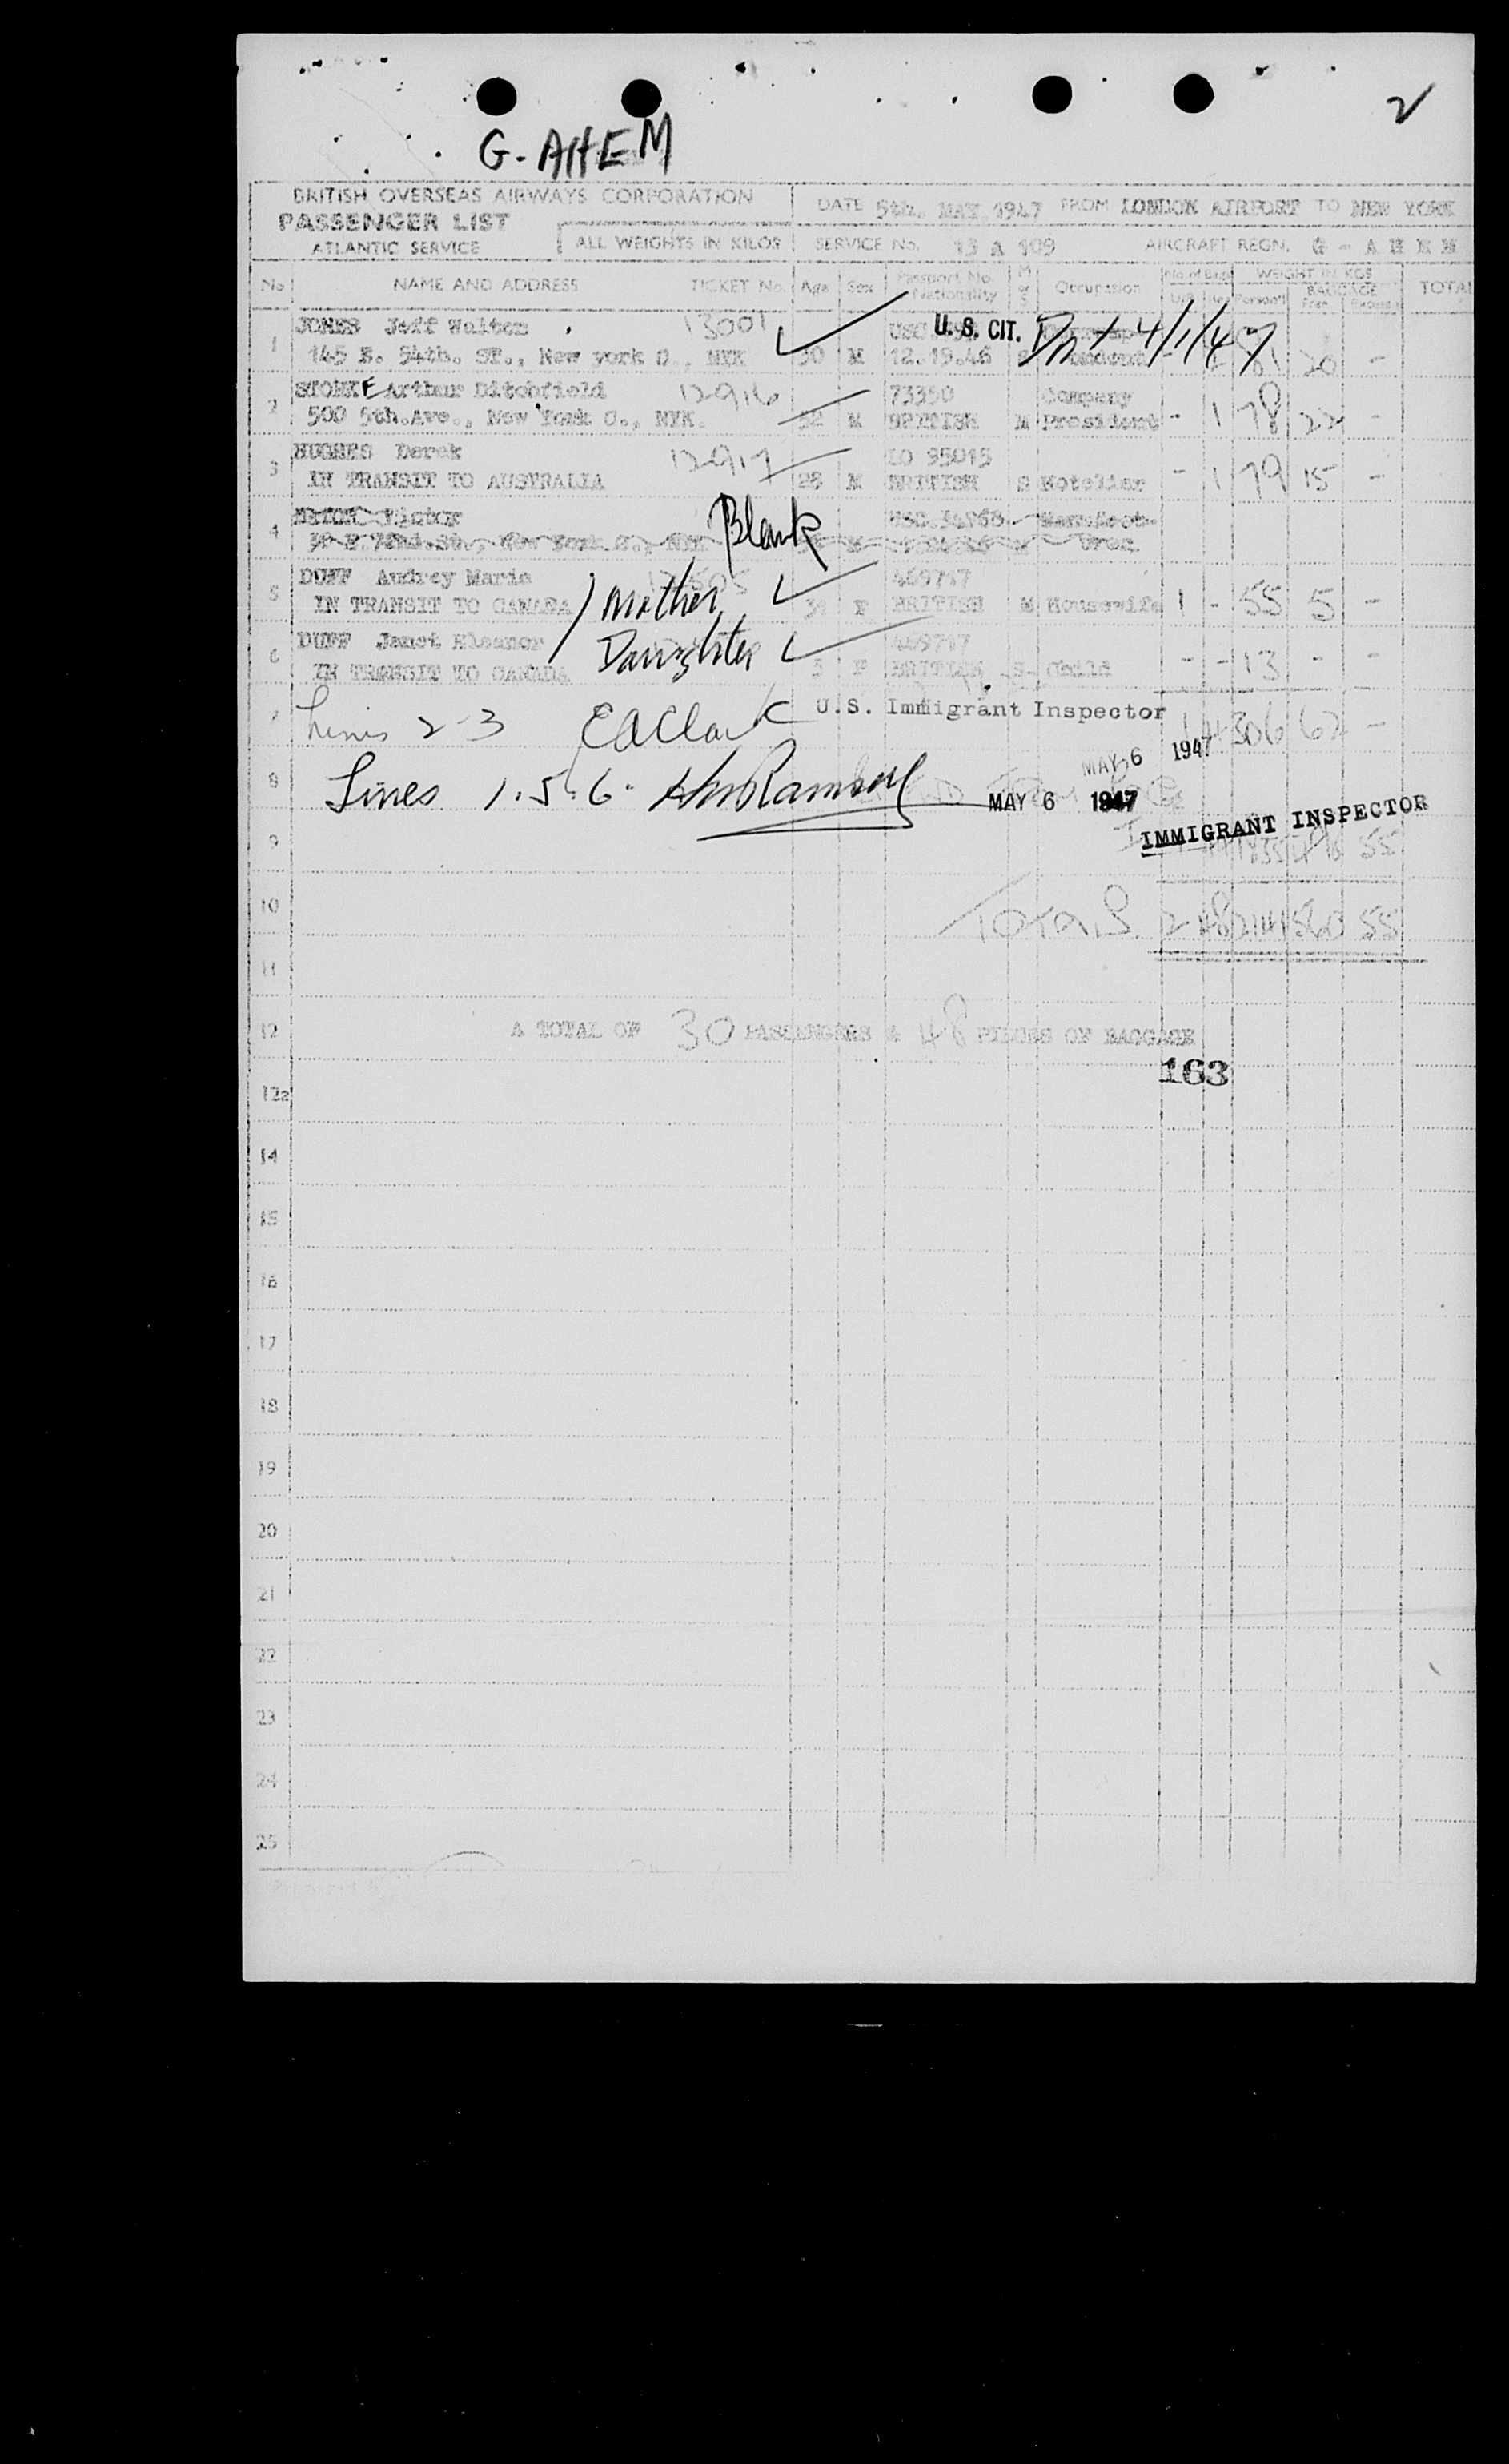 2
G-AHEM
BRITISH OVERSEAS AIRWAYS CORPORATION
PASSENGER LIST
ATLANTIC SERVICE
ALL WEIGHTS IN KILOS
DATE 5th. MAY 1947 FROM LONDON AIRPORT TO NEW YORK
SERVICE No. 13 A 109 AIRCRAFT REGN. G - A H E M
No NAME AND ADDRESS TICKET No. Age Sex Passport No. Nationality M or S Occupation No. of Bags WEIGHT IN KGS BAGGAGE Free Excess TOTAL
1 JONES Jeff Walton 13001 U. S. CIT.
145 E. 54th. ST., New york C., NYK 30 M 12.19.46 20 -
2 STORKE Arthur Ditchfield 12916 73350 Company
500 5th.Ave., New York C., NYK. 52 M BRITISH M President - 1 78 22 -
3 HUGHES Derek 12917 LO 95015
IN TRANSIT TO AUSTRALIA 28 M BRITISH S Hotelier - 1 79 15 -
4 Blank
5 DUFF Audrey Marie 469717
IN TRANSIT TO CANADA ) Mother F BRITISH M Housewife 1 - 55 5 -
6 DUFF Janet Eleanor Daughter 469717
IN TRANSIT TO CANADA 3 F BRITISH S Child - - 13 - -
7 Lines 2-3 EAClark U.S. Immigrant Inspector 306 62 -
MAY 6 1947
8 Lines 1.5.6. MAY 6 1947
IMMIGRANT INSPECTOR
9 55
10 TOTALS 2 48 2141 560 55
11
12 A TOTAL OF 30 PASSENGERS & 48 PIECES OF BAGGAGE
163
12a
14
15
16
17
18
19
20
21
22
23
24
25